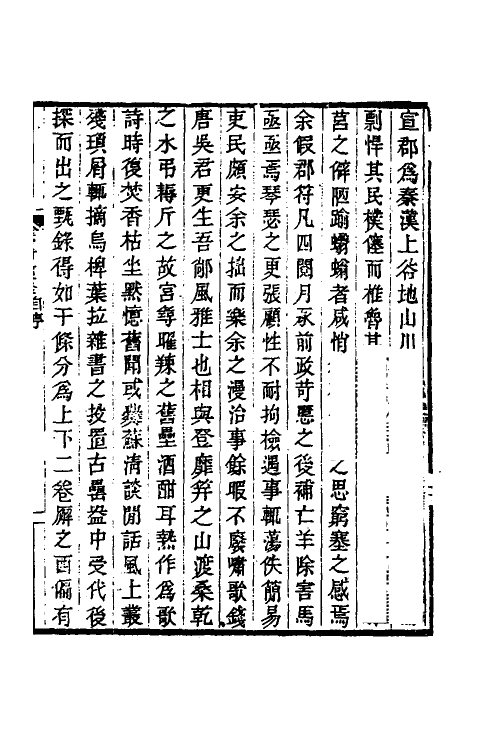 宣郡為秦漢上谷地山川
剽悍其民樸僿而椎魯其
莒之僻陋踰蠮螉者咸悄之思窮塞之感焉
余假郡符凡四閱月承前政苛慝之後補亡羊除害馬
亟亟焉琴瑟之更張顧性不耐拘檢遇事輒蕩佚簡易
吏民頗安余之拙而樂余之漫治事餘暇不廢嘯歌錢
唐吳君更生吾鄉風雅士也相與登靡笄之山渡桑乾
之水弔耨斤之故宮尋曜辣之舊壘酒酣耳熱作為歌
詩時復焚香枯坐默憶舊聞或爨蘇清談閒話風土叢
殘瑣屑輒摘烏椑葉拉雜書之投置古罍盎中受代後
探而出之甄錄得如干條分為上下二卷廨之酉偏有